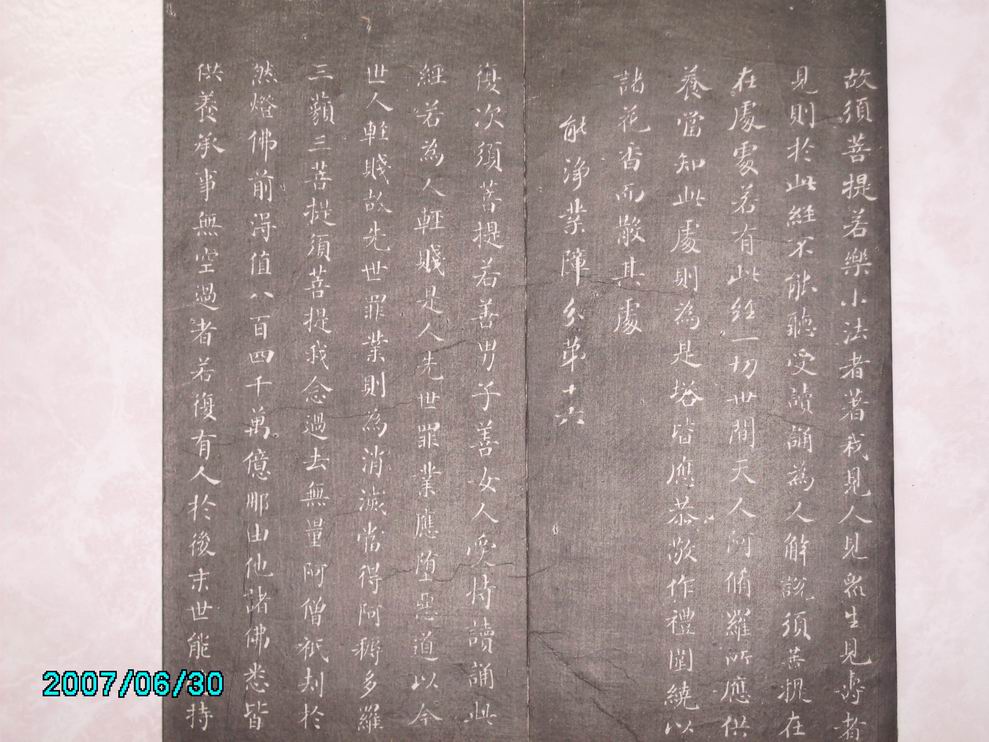 故須菩提若樂小法者著我見人見眾生見壽者
見則於此經不能聽受讀誦為人解說須菩提在
在處處若有此經一切世間天人阿脩羅所應供
養當知此處則為是塔皆應恭敬作禮圍繞以
諸花香而散其處
能淨業障分第十六
復次須菩提若善男子善女人受持讀誦此
經若為人輕賤是人先世罪業應墮惡道以今
世人輕賤故先世罪業則為消滅當得阿耨多羅
三藐三菩提須菩提我念過去無量阿僧祇劫於
然燈佛前得值八百四千萬億那由他諸佛悉皆
供養承事無空過者若復有人於後末世能持
2007/06/30